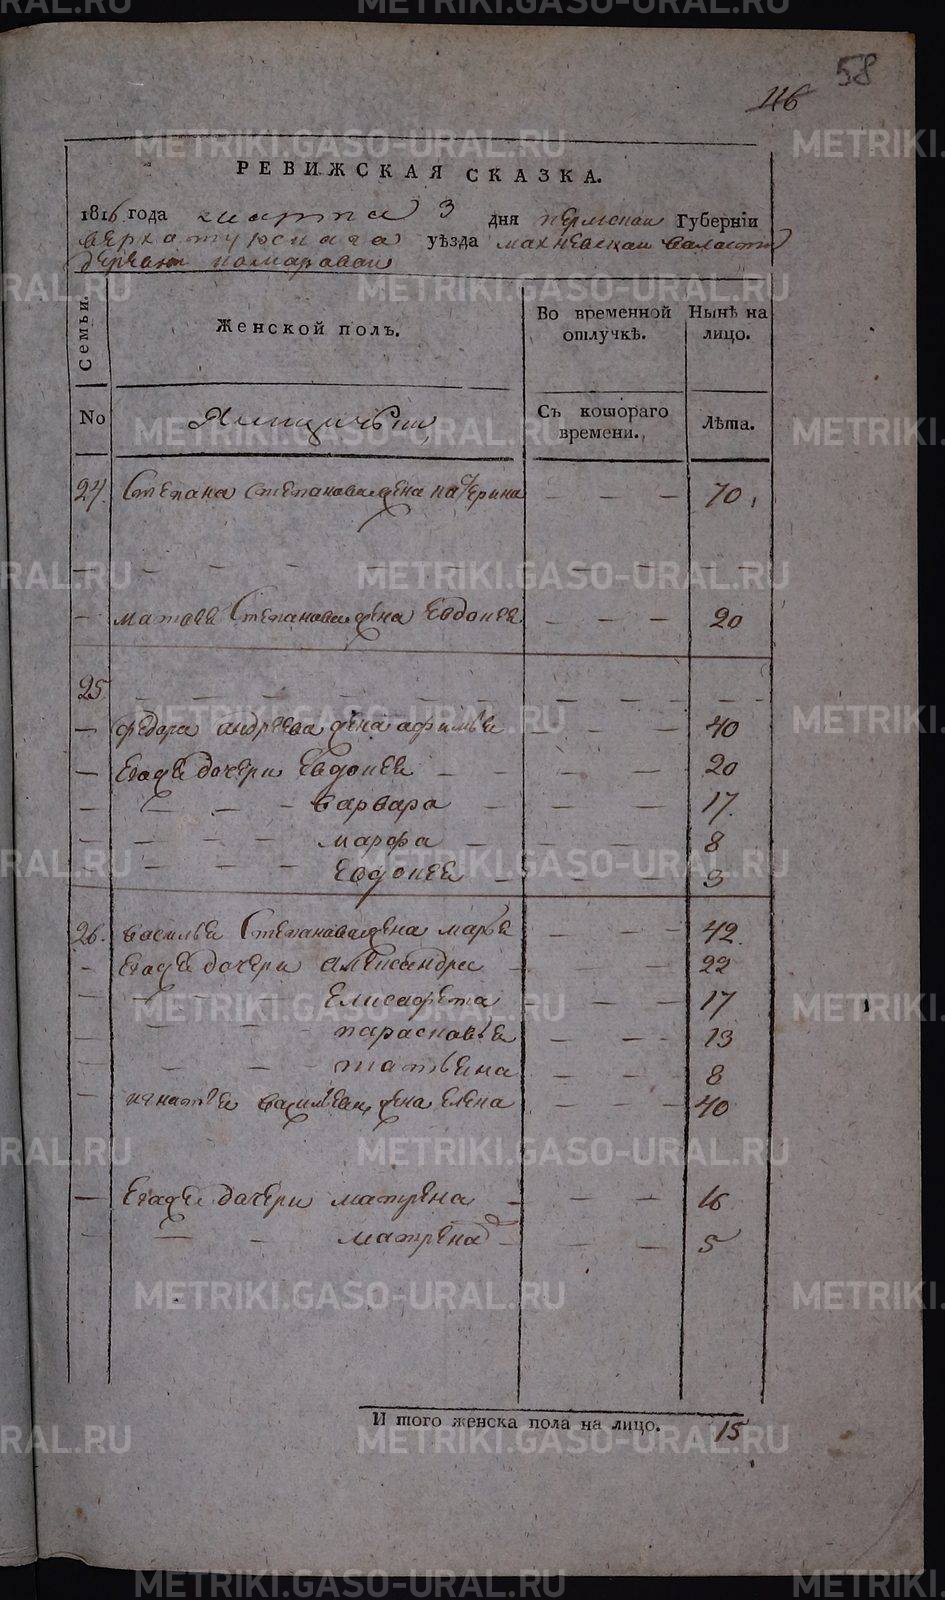 58
46
РЕВИЖСКАЯ СКАЗКА.
1816 года марта 3 дня пермской Губернїи
верхатурскага уѣзда махневскай валасти
деревни комаровай
Семьи.
Женской полъ.
Во временной отлучкѣ.
Нынѣ на лицо.
No
Съ котораго времени.
Лѣта.
24. Степана Степанова жена катерина — — — 70
— — — — — — — — —
— матвея Степанова жена Евдокея — — — 20
25 — — — — — — — — —
— федора андреева жена афимье — — — 40
— Егоже дочери Евдокея — — — 20
— — — варвара — — — 17.
— — — — марфа — — — 8
— — — — Евдокея — — — 3
26. василья Степанова жена марья — — — 42.
— Егоже дочери александра — — — 22
— — — Елисафета — — — 17
— — — параскавья — — — 13
— — — татьяна — — — 8
— игнатья васильева жена елена — — — 40
— Егоже дочери матрена — — — 16
— — — матрена — — — 5
И того женска пола на лицо. 15
METRIKI.GASO-URAL.RU